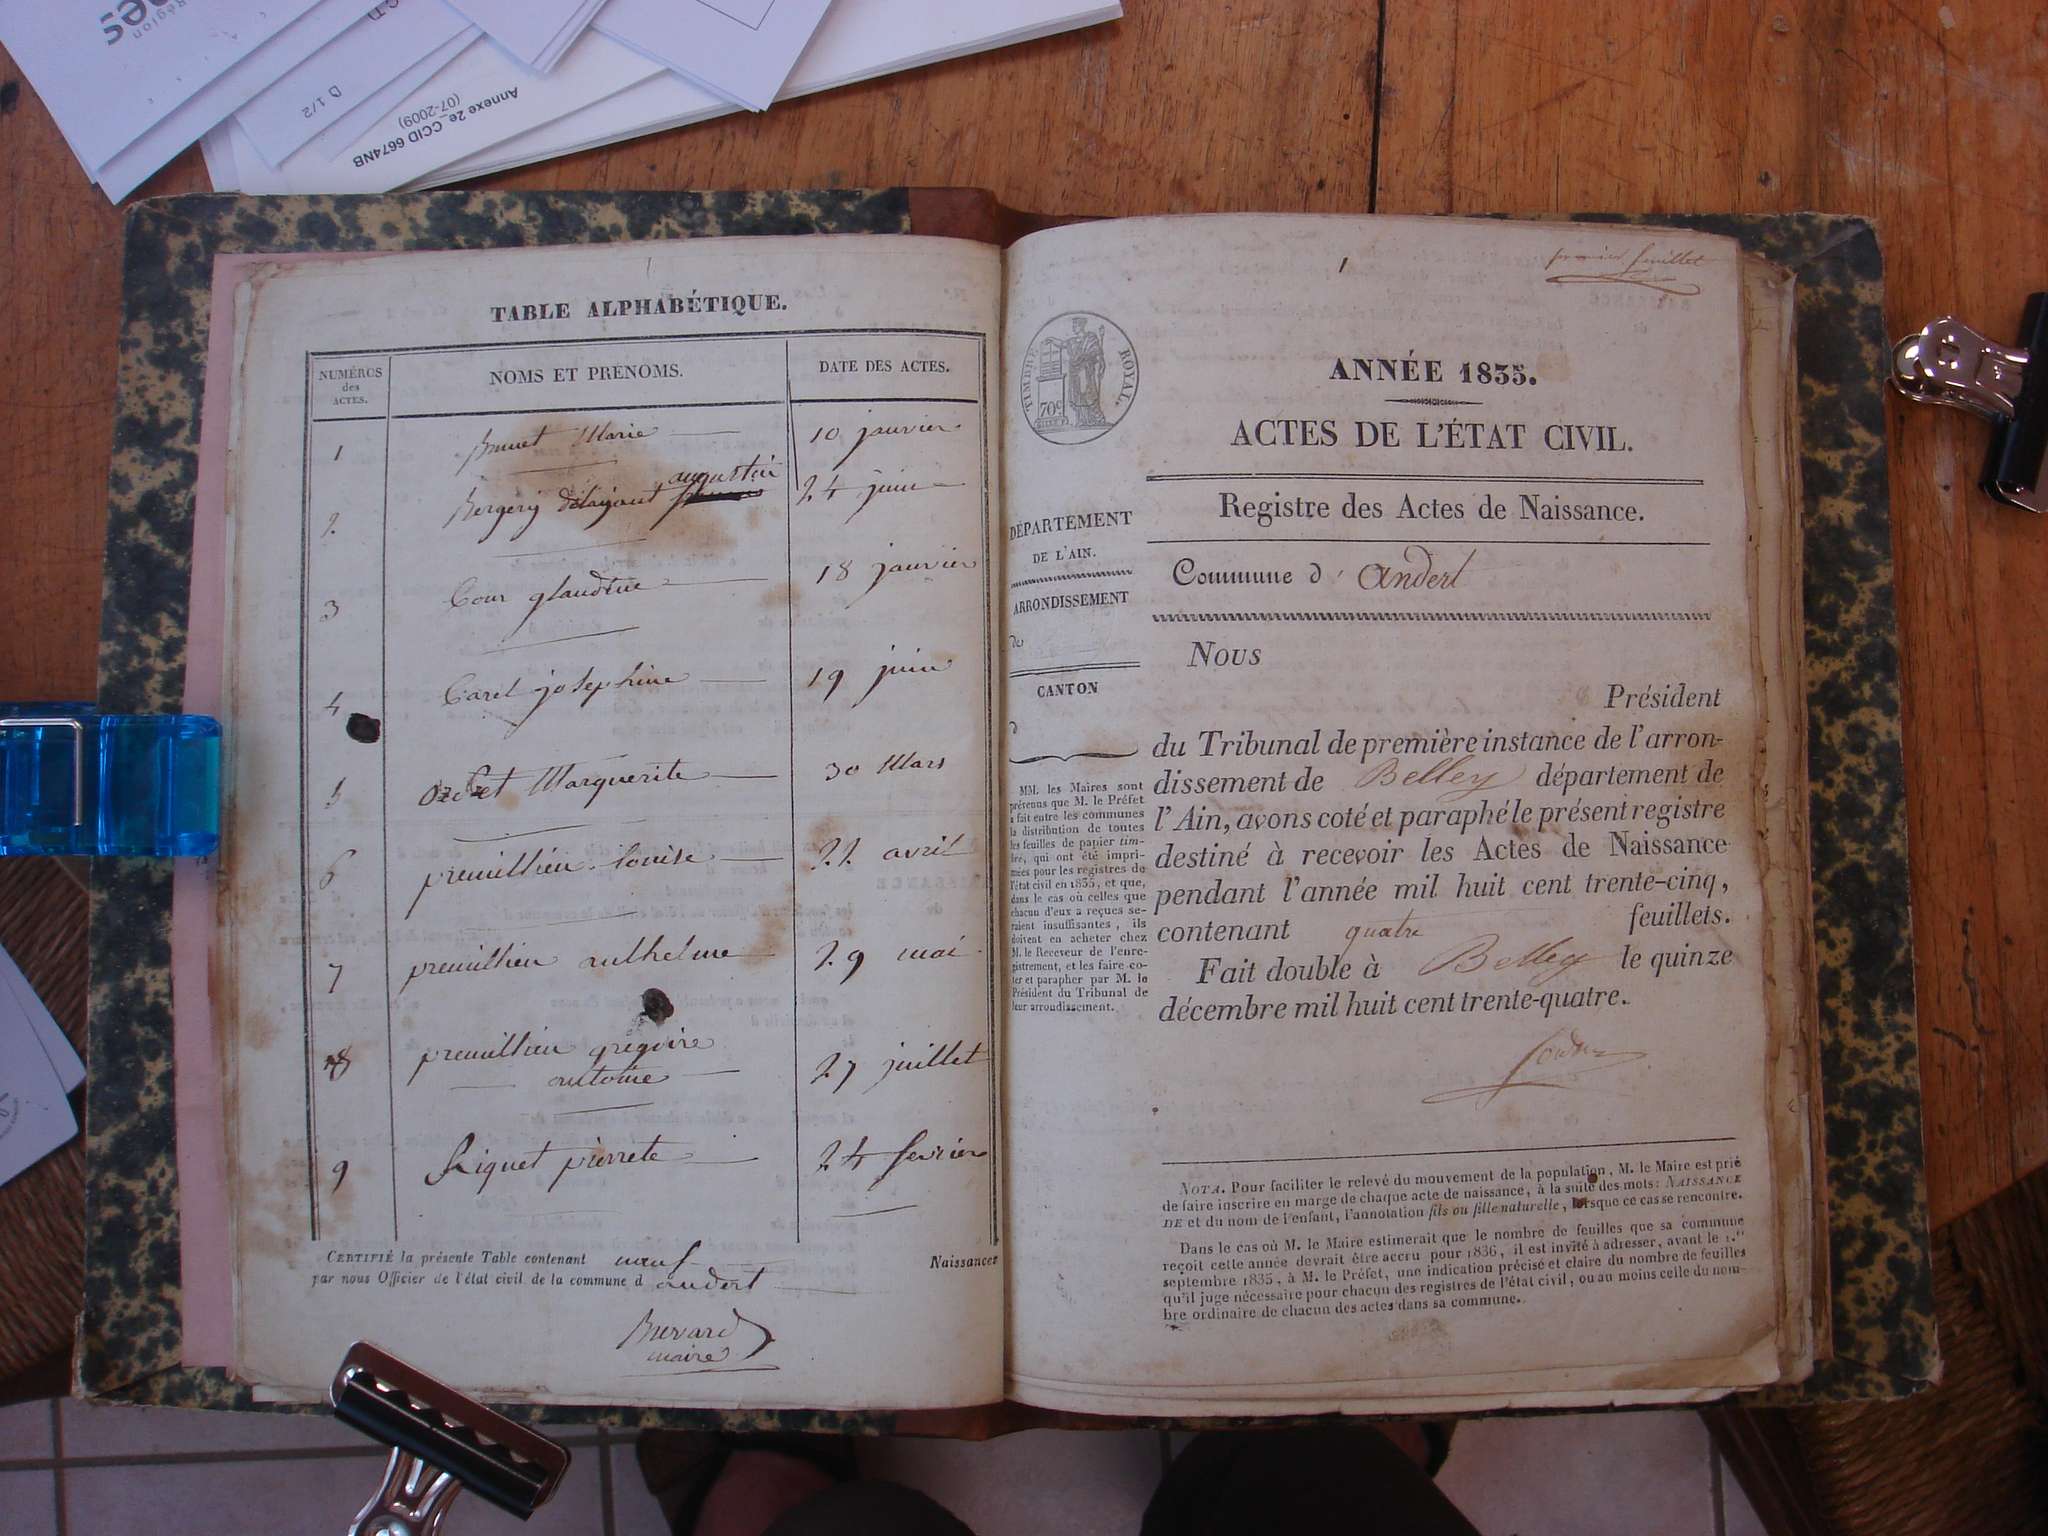 Région
D 1/2
Annexe 2e_CCID 6674NB
(07-2009)
TABLE ALPHABÉTIQUE.
NUMÉROS
des
ACTES.
NOMS ET PRÉNOMS.
DATE DES ACTES.
1 Brunet Marie 10 janvier
augustin
2 Bergery délaigant 24 juin
3 Cour glaudine 18 janvier
4 Carel josephine 19 juin
5 Marguerite 30 Mars
6 premillieu louise 22 avril
7 premillieu anthelme 29 mai
8 premillieu grégoire
antoine 27 juillet
9 Riquet pierrete 24 fevrier
CERTIFIÉ la présente Table contenant neuf Naissances
par nous Officier de l'état civil de la commune d andert
maire
1
premier feuillet
TIMBRE ROYAL.
70c
ANNÉE 1835.
ACTES DE L'ÉTAT CIVIL.
Registre des Actes de Naissance.
Commune d' andert
DÉPARTEMENT
DE L'AIN.
ARRONDISSEMENT
de
CANTON
d
MM. les Maires sont
prévenus que M. le Préfet
a fait entre les communes
la distribution de toutes
les feuilles de papier tim-
bré, qui ont été impri-
mées pour les registres de
l'état civil en 1835, et que,
dans le cas où celles que
chacun d'eux a reçues se-
raient insuffisantes, ils
doivent en acheter chez
M. le Receveur de l'enre-
gistrement, et les faire co-
ter et parapher par M. le
Président du Tribunal de
leur arrondissement.
Nous
Président
du Tribunal de première instance de l'arron-
dissement de Belley département de
l'Ain, avons coté et paraphé le présent registre
destiné à recevoir les Actes de Naissance
pendant l'année mil huit cent trente-cinq,
contenant quatre feuillets.
Fait double à Belley le quinze
décembre mil huit cent trente-quatre.
NOTA. Pour faciliter le relevé du mouvement de la population, M. le Maire est prié
de faire inscrire en marge de chaque acte de naissance, à la suite des mots: NAISSANCE
DE et du nom de l'enfant, l'annotation fils ou fille naturelle, lorsque ce cas se rencontre.
Dans le cas où M. le Maire estimerait que le nombre de feuilles que sa commune
reçoit cette année devrait être accru pour 1836, il est invité à adresser, avant le 1.er
septembre 1835, à M. le Préfet, une indication précise et claire du nombre de feuilles
qu'il juge nécessaire pour chacun des registres de l'état civil, ou au moins celle du nom-
bre ordinaire de chacun des actes dans sa commune.